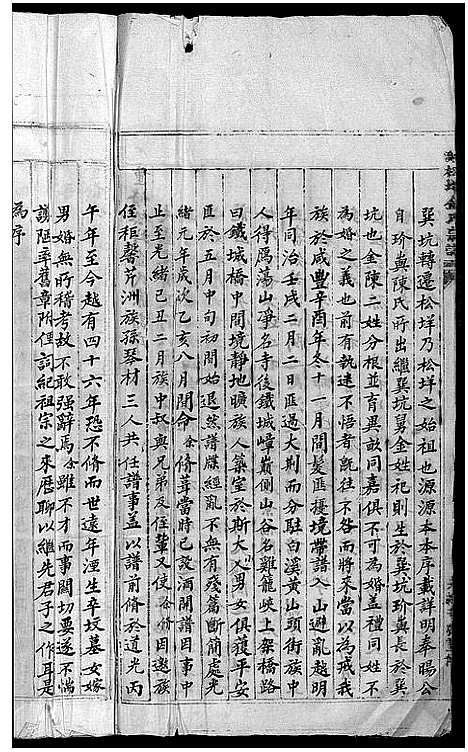 巽坑轉遷松垟乃松垟之始祖也源源本本序載詳明奉賜公
自玠與陳氏所出繼巽坑舅金姓祀則生於巽坑玠與長於巽
坑也金陳二姓分根並育異畝同嘉俱不可為婚盖禮同姓不
為婚之義也前有執迷不悟者既往不咎而將來當以為戒我
族於咸豐辛酉年冬十一月間髮匪擾境帶譜入山避亂越明
年同治壬戌二月二日匪過大荆而分駐白溪黃山頭街族中
人得厲蕩山淨名寺後鐵城嶂巔側山谷名雞籠峽上架橋路
曰鐵城橋中間境靜地曠族人築室於斯大人男女俱獲平安
匪於五月中旬初開始退然譜牒經亂不無有殘篇断簡處光
緒元年歲次乙亥八月間命余脩葺當時已設酒開譜因事中
止至光緒己丑二月族中叔與兄弟及侄輩又使余脩因邀族
侄秬馨芹洲族孫琴材三人共任譜事盖以譜前脩於道光丙
午年至今越有四十六年恐不脩而世遠年湮生卒坟墓女嫁
男婚無所稽考故不敢强辭焉余雖不才而事関切要遂不惴
譾陋率舊章附俚詞紀祖宗之來歷聊以繼先君子之作耳是
為序